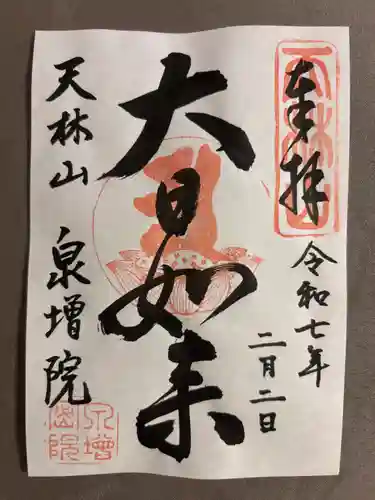 奉拝
天林山
令和七年
二月二日
大日如来
天林山 泉増院
泉増院